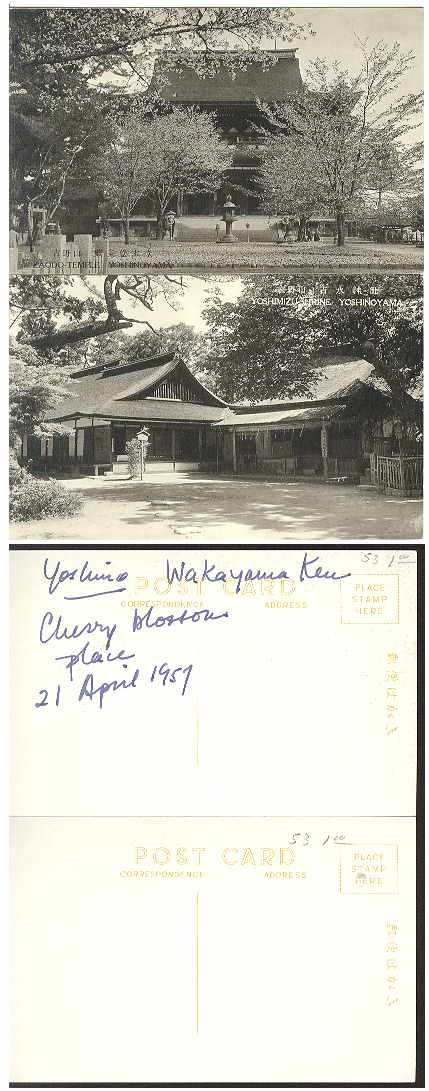 ZAODO-TEMPLE, YOSHINOYAMA
YOSHIMIZU-SHRINE, YOSHINOYAMA
53 1.00
Yoshino Wakayama Ken
POST CARD
CORRESPONDENCE ADDRESS
PLACE
STAMP
HERE
Cherry blossom
place
21 April 1957
郵便はがき
53 1.00
POST CARD
CORRESPONDENCE ADDRESS
PLACE
STAMP
HERE
郵便はがき